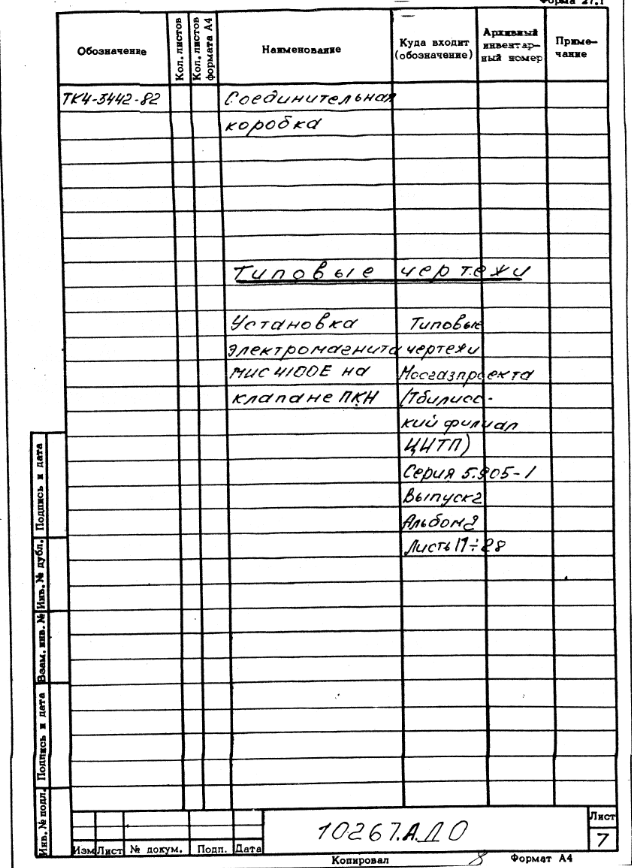 Форма 27.1
Обозначение
Кол. листов
Кол. листов формата А4
Наименование
Куда входит (обозначение)
Архивный инвентарный номер
Примечание
ТК4-3442-82 Соединительная
коробка
Типовые чертежи
Установка Типовые
электромагнита чертежи
МИС 4100Е на Мосгазпроекта
клапане ПКН (Тбилис-
кий филиал
ЦИТП)
Серия 5.905-1
Выпуск 2
Альбом 2
Листы 17÷28
Подпись и дата
Инв. № дубл.
Взам. инв. №
Подпись и дата
Инв. № подл.
Изм Лист № докум. Подп. Дата
10267.АДО
Лист
7
Копировал
Формат А4